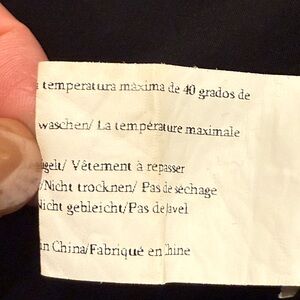 temperatura máxima de 40 grados de
waschen/ La température maximale
gelt/ Vêtement à repasser
/Nicht trocknen/ Pas de séchage
Nicht gebleicht/Pas de Javel
in China/Fabriqué en Chine